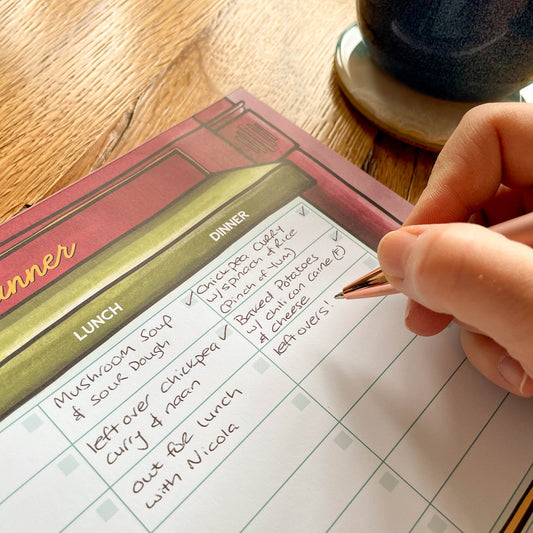 anner
LUNCH
DINNER
Mushroom Soup
& sour Dough
Chickpea Curry
w/ spinach & Rice
(Pinch of Yum)
leftover chickpea
curry & naan
Baked Potatoes
w/ chili con carne (F)
& cheese
out for lunch
with Nicola
leftovers!